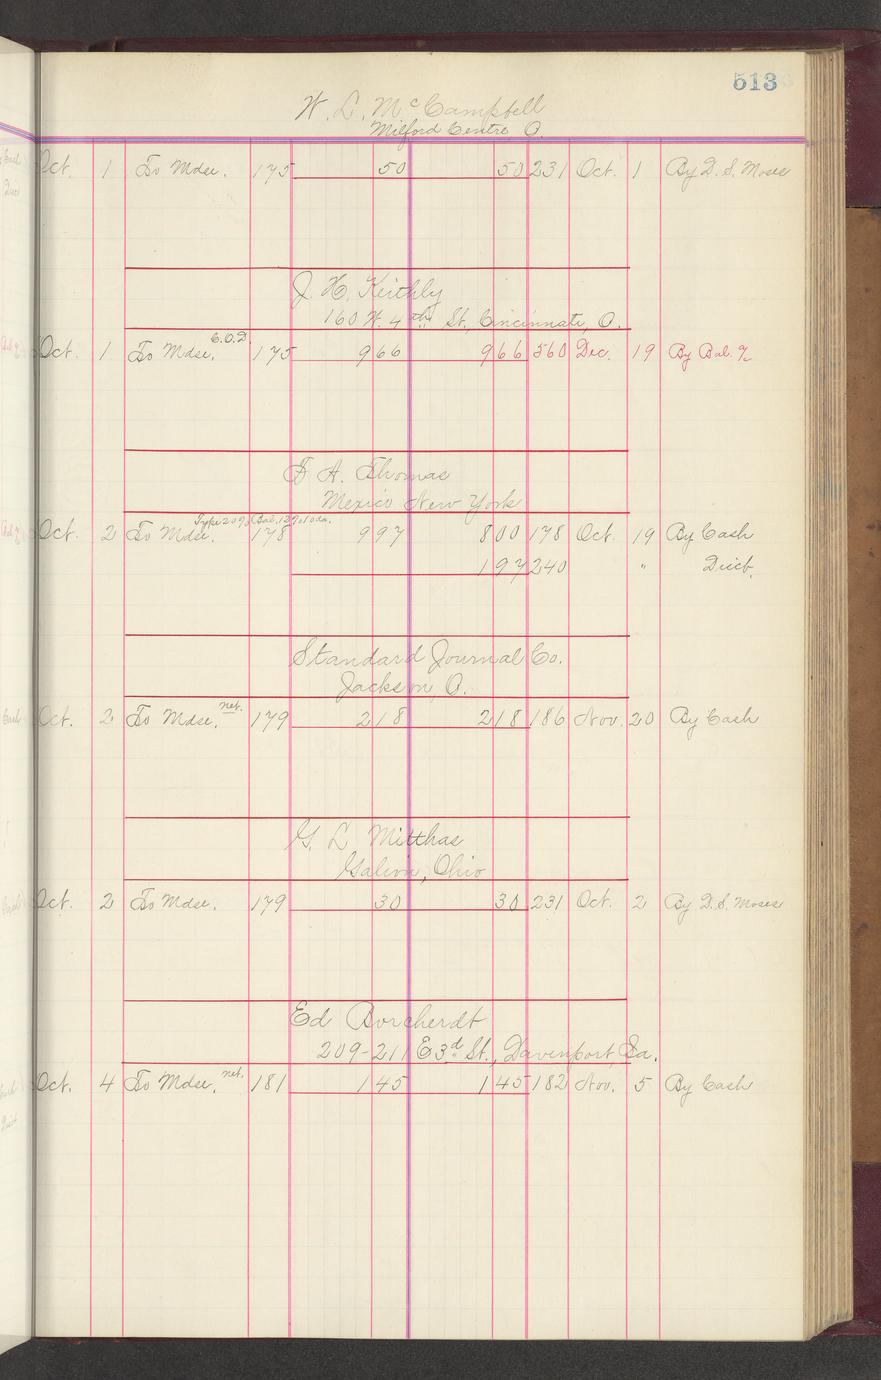 513
W. L. McCampbell
Milford Centre O.
Oct. 1 To Mdse. 175 50 50 231 Oct. 1 By D. S. Moses
J. H. Keithly
160 W. 4th St., Cincinnati, O.
C.O.D.
Oct. 1 To Mdse. 175 966 966 560 Dec. 19 By Bal. %
F A. Thomas
Mexico New York
Type 20% Bal. 12% 10 da.
Oct. 2 To Mdse. 178 997 800 178 Oct. 19 By Cash
197 240 " Disct.
Standard Journal Co.
Jackson, O.
Oct. 2 To Mdse. net. 179 218 218 186 Nov. 20 By Cash
G. L. Mitthas
Galion, Ohio
Oct. 2 To Mdse. 179 30 30 231 Oct. 2 By D. S. Moses
Ed Borcherdt
209-211 E 3d St., Davenport, Ia.
Oct. 4 To Mdse. net. 181 145 145 182 Nov. 5 By Cash